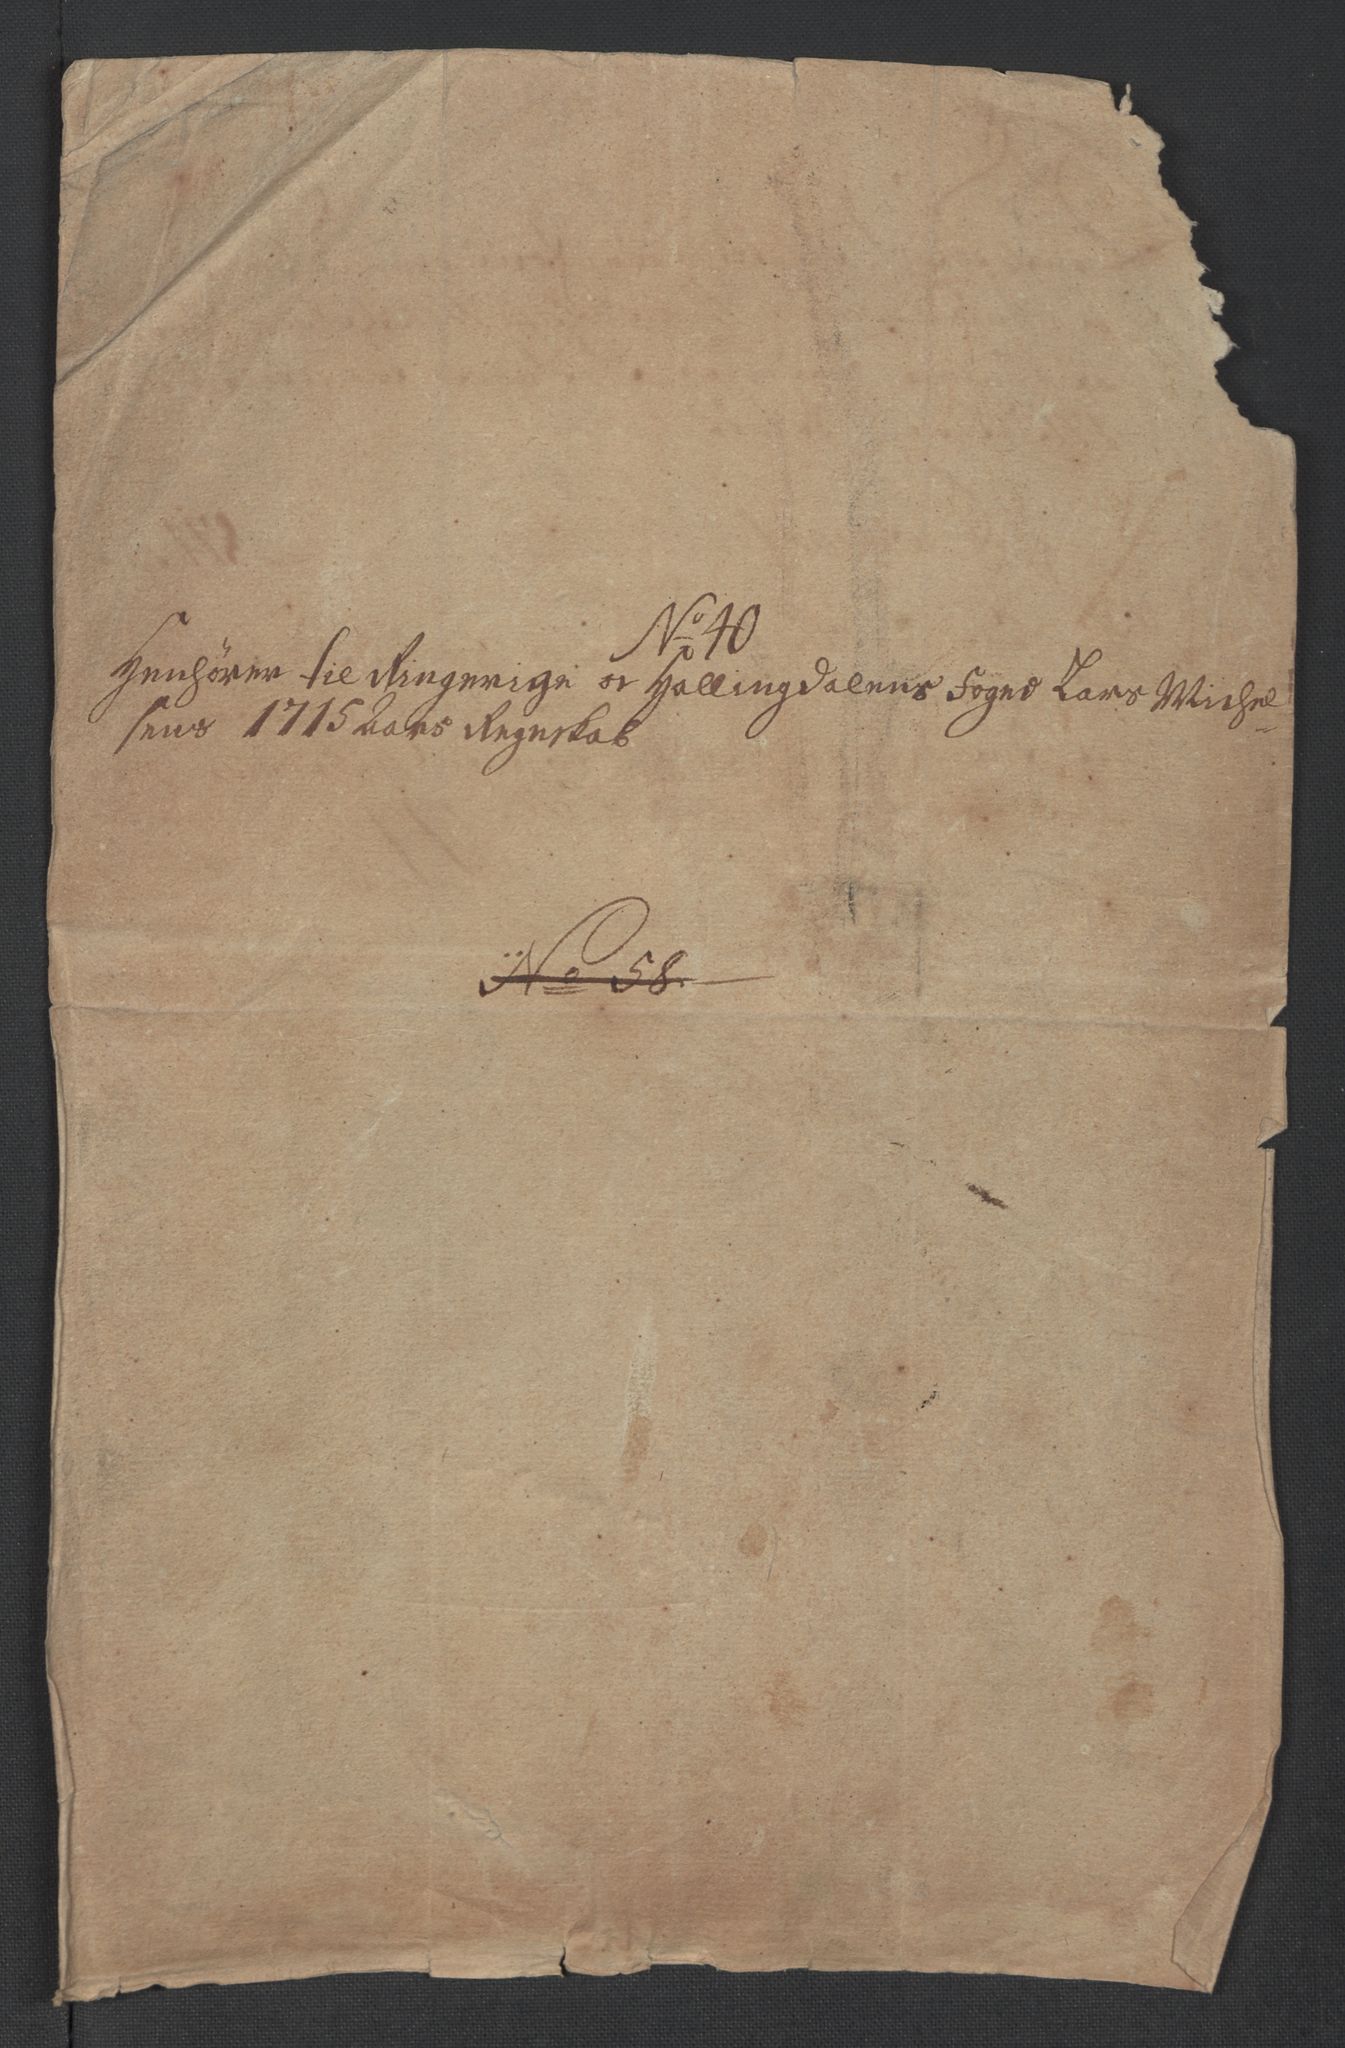 No 40
Henhörer til Ringerige og Hallingdalens Foged Lars Michel-
sens 1715 Aars Regnskab
No 58.